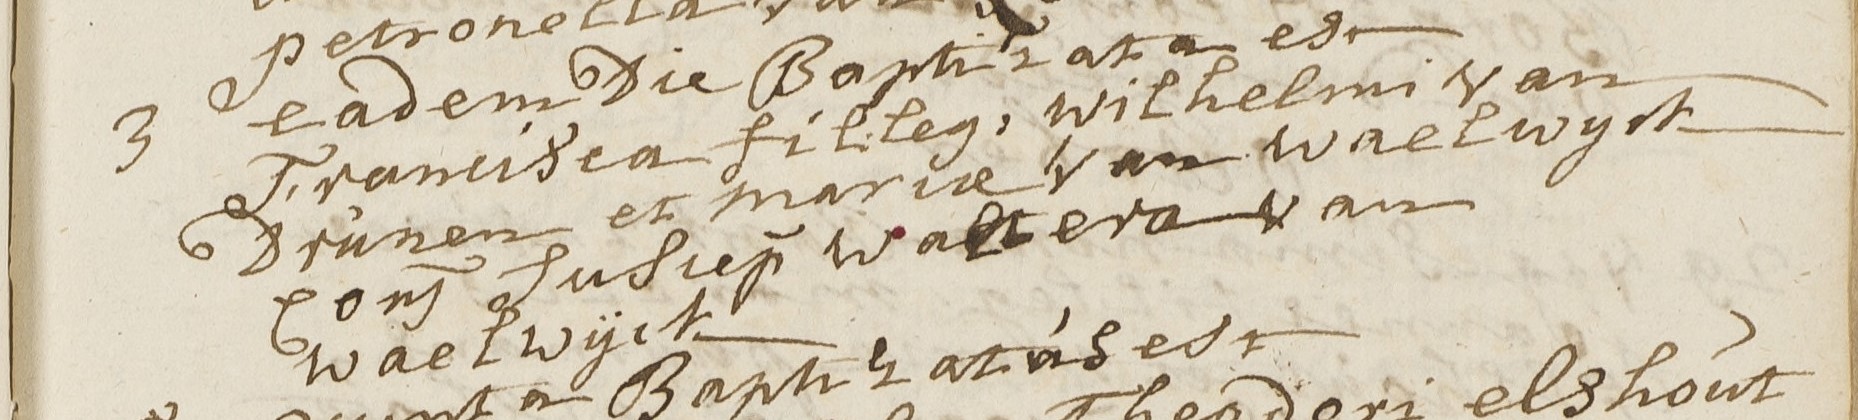 petronella van
3 eadem Die Baptizata est
Francisca fil: leg: wilhelmi van
Drúnen et mariæ van waelwyck
conj Suscep waltera van
waelwijck
Baptizatús est
Theodori elshout